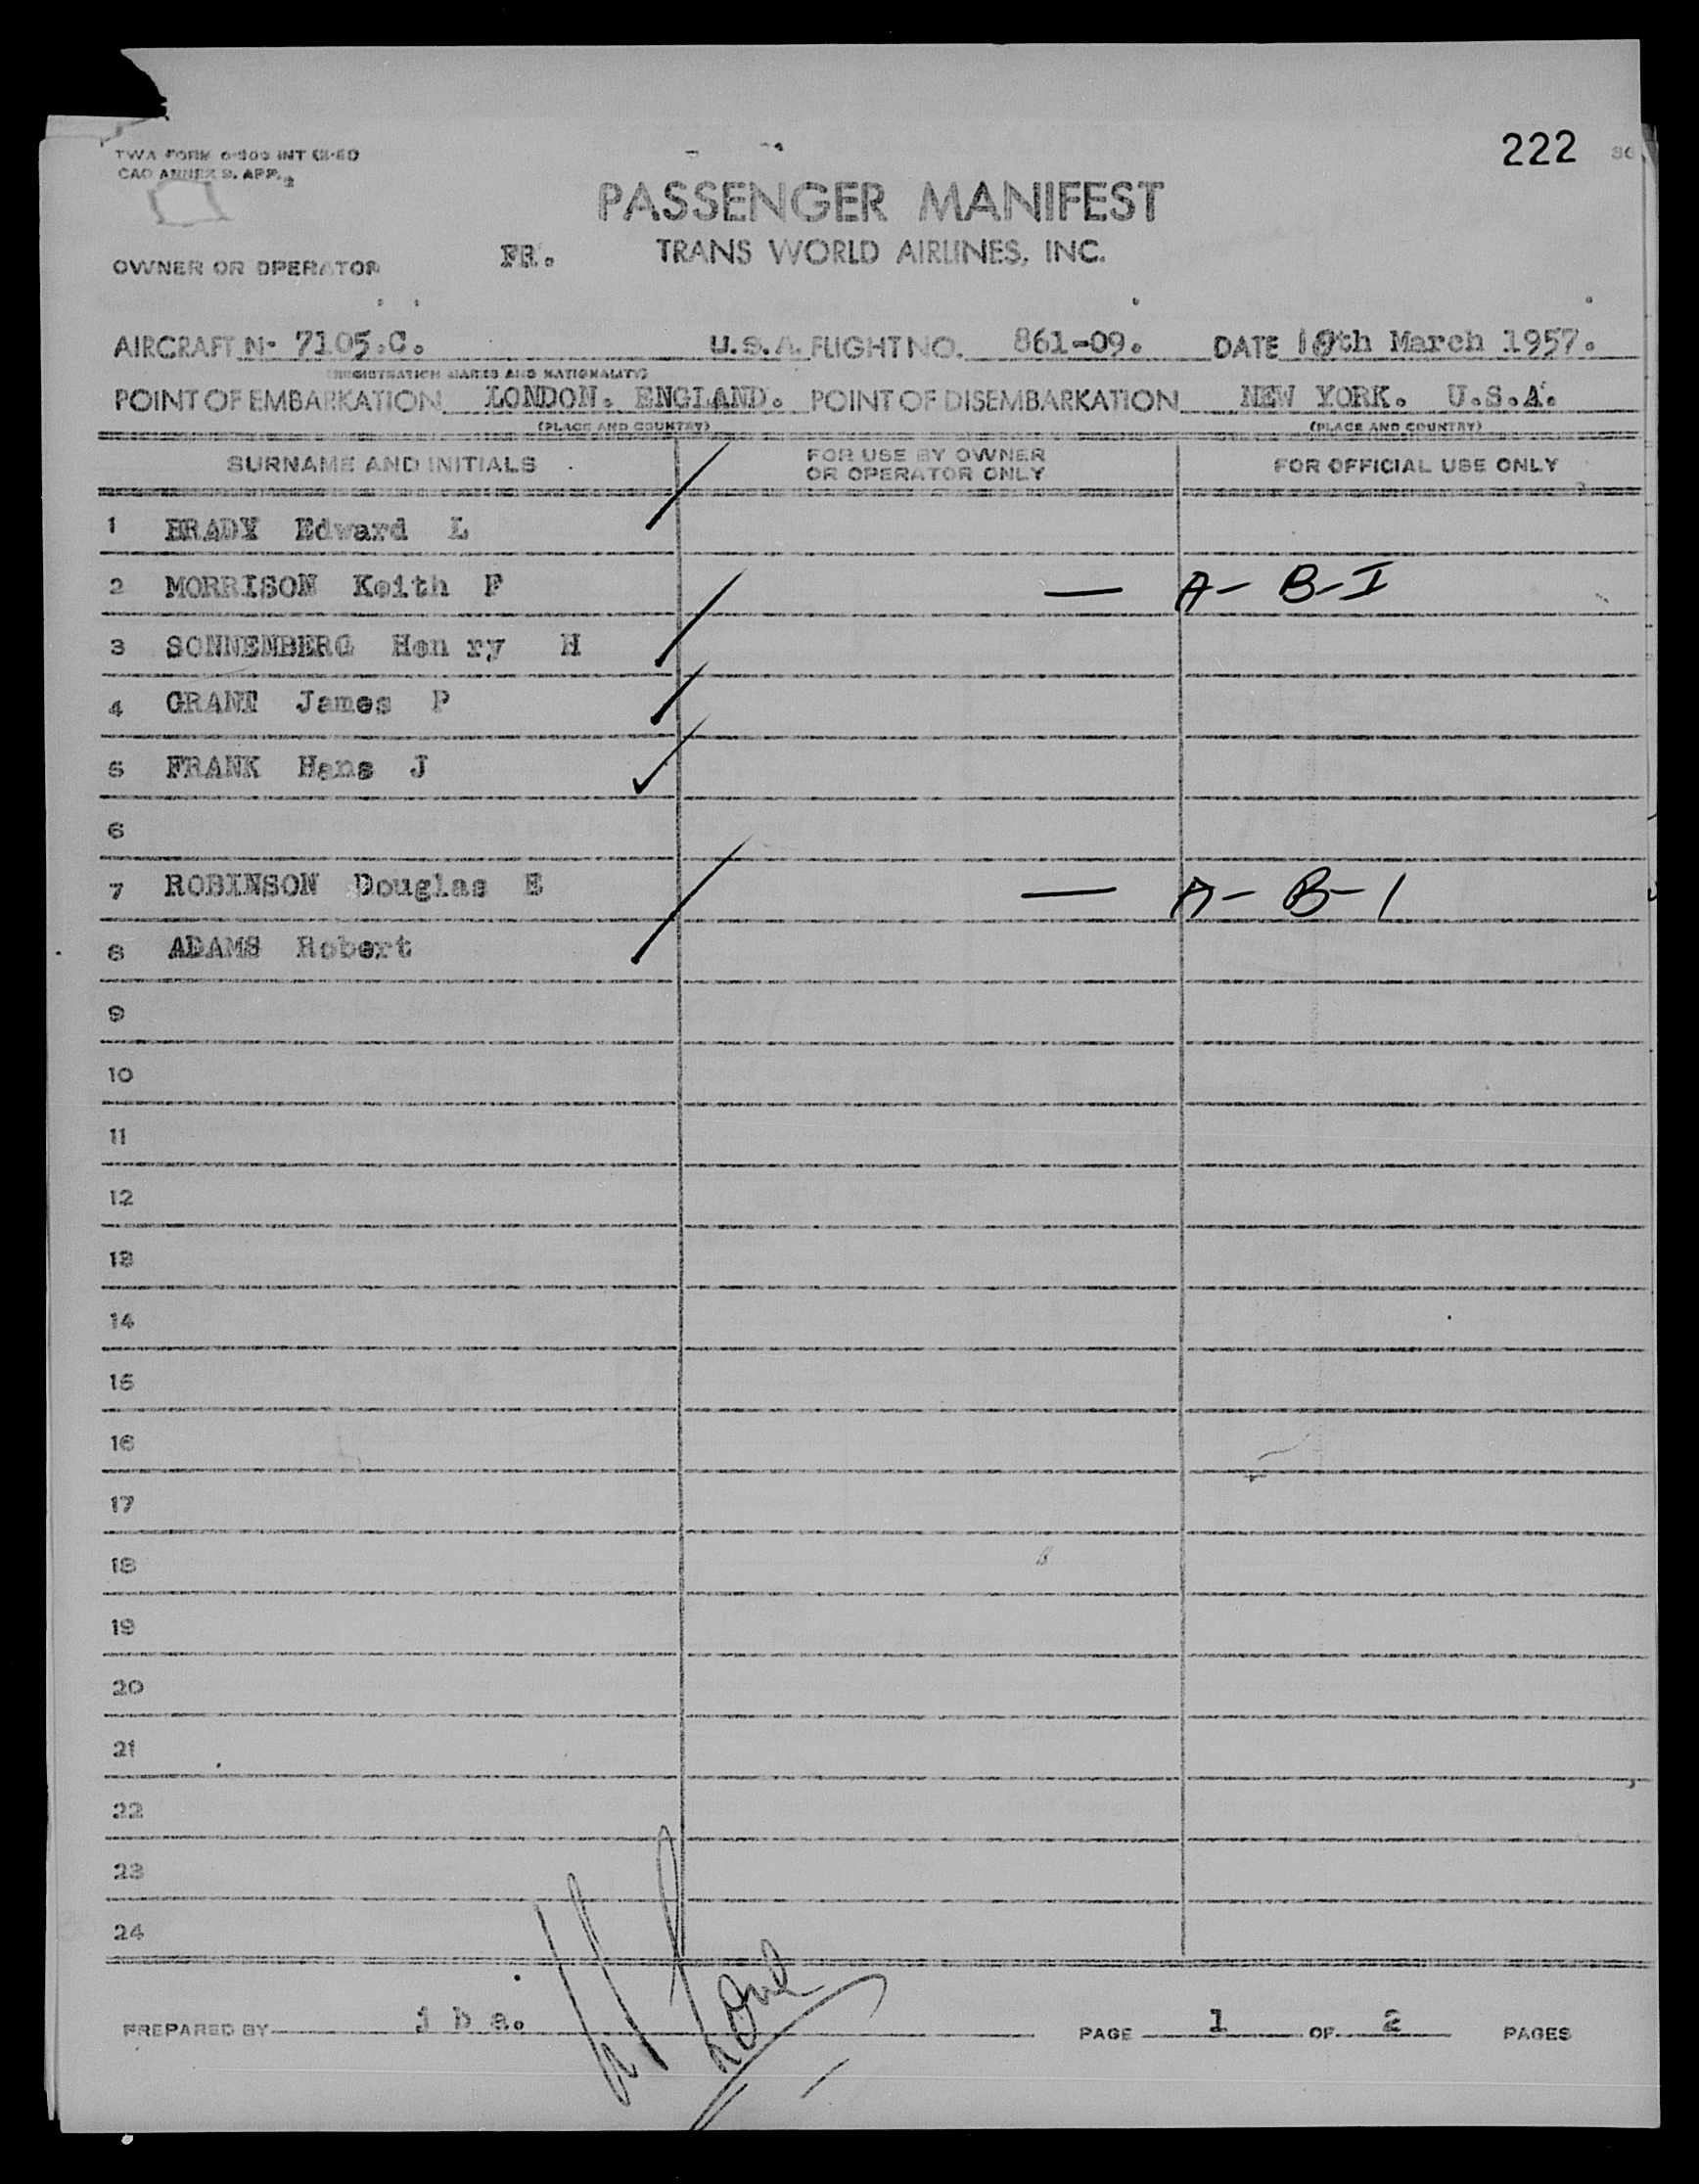 222
TWA FORM
PASSENGER MANIFEST
OWNER OR OPERATOR FR. TRANS WORLD AIRLINES, INC.
AIRCRAFT N- 7105.C. U.S.A. FLIGHT NO. 861-09. DATE 19th March 1957.
(REGISTRATION MARKS AND NATIONALITY)
POINT OF EMBARKATION LONDON. ENGLAND. POINT OF DISEMBARKATION NEW YORK. U.S.A.
(PLACE AND COUNTRY) (PLACE AND COUNTRY)
SURNAME AND INITIALS FOR USE BY OWNER OR OPERATOR ONLY FOR OFFICIAL USE ONLY
1 BRADY Edward L
2 MORRISON Keith F — A- B-I
3 SONNEMBERG Hen ry H
4 GRANT James P
5 FRANK Hans J
6
7 ROBINSON Douglas E — A- B-1
8 ADAMS Robert
9
10
11
12
13
14
15
16
17
18
19
20
21
22
23
24
PREPARED BY j b a. PAGE 1 OF 2 PAGES